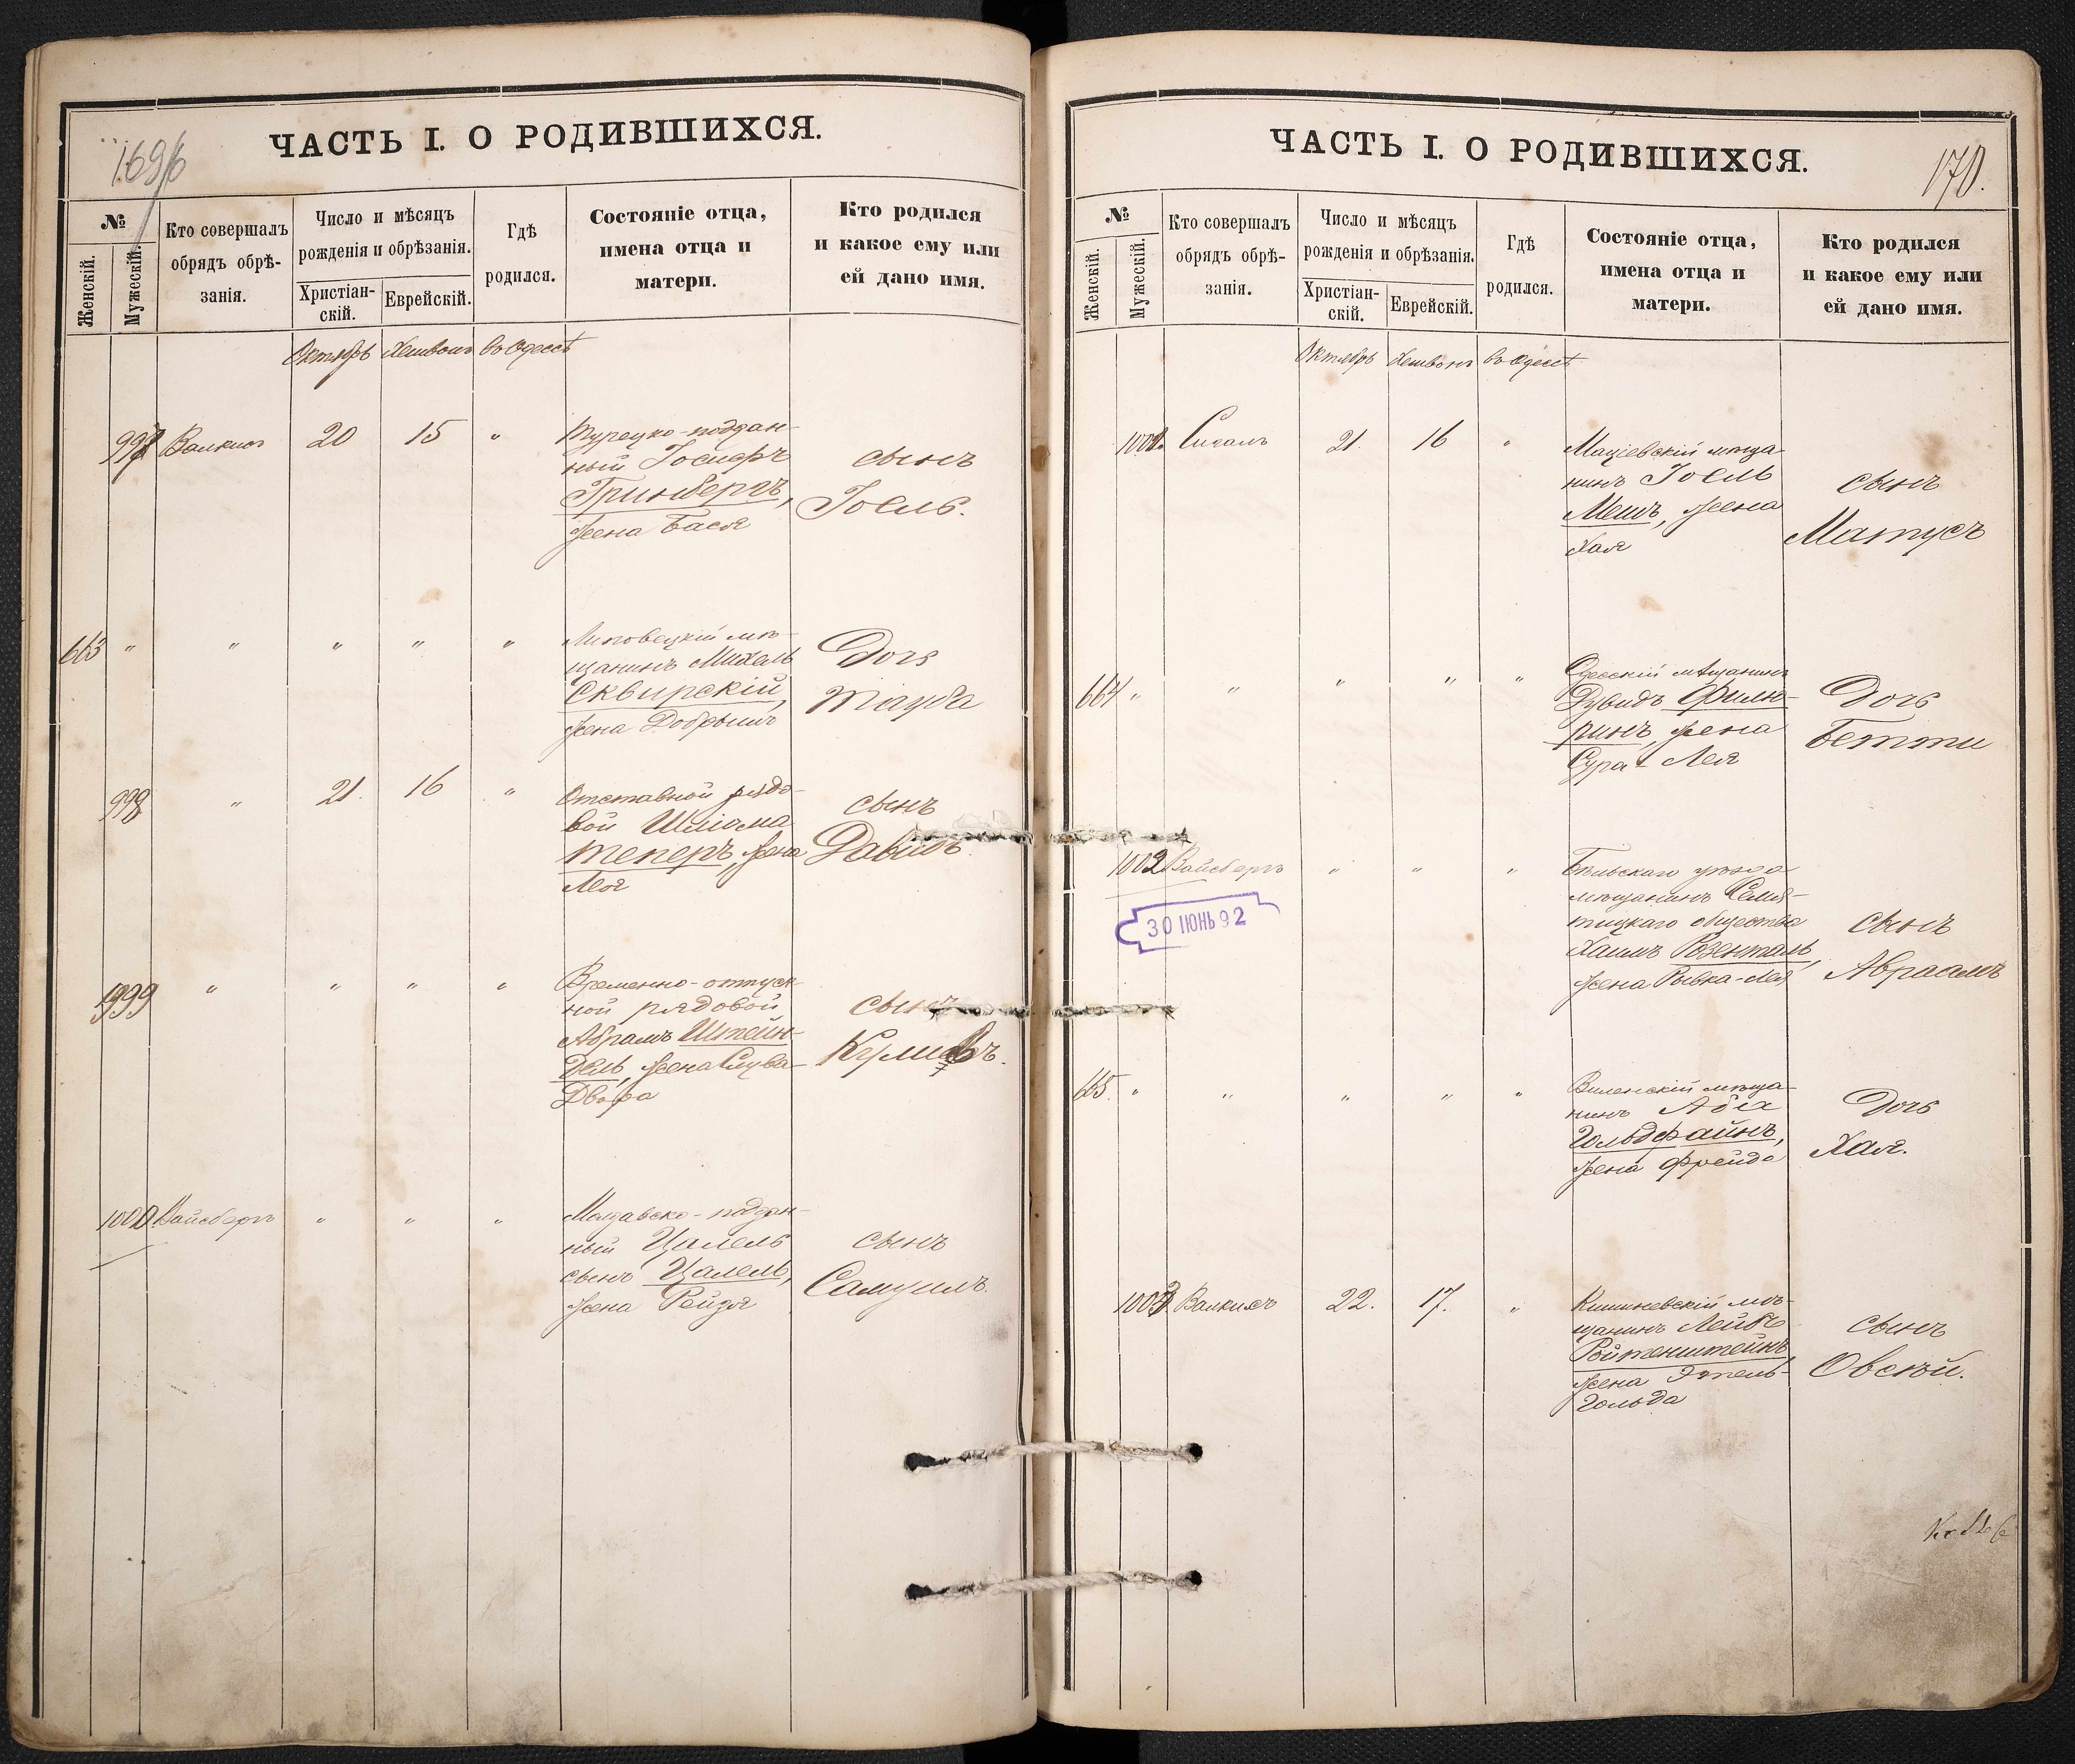 ЧАСТЬ I. О РОДИВШИХСЯ.
169б
№
Женскій.
Мужескій.
Кто совершалъ
обрядъ обрѣ-
занія.
Число и мѣсяцъ
рожденія и обрѣзанія.
Христіан-
скій.
Еврейскій.
Гдѣ
родился.
Состояніе отца,
имена отца и
матери.
Кто родился
и какое ему или
ей дано имя.
Октябрь Хешвонъ въ Одессѣ
997 20 15 "
Турецко-поддан-
ный Іосифъ
Гринбергъ,
жена Бася
сынъ
Іосль.
663 " " " " "
Липовецкій мѣ-
щанинъ Михель
Сквирскій,
жена Добрышъ
Дочь
Тауба
998 " 21. 16 "
Отставной рядо-
вой Шлiома
Теперъ, жена
Лея
сынъ
Давидъ.
999 " " " "
Временно-отпуск
ной рядовой
Абрамъ Штейн-
дель, жена Слува-
Двора
сынъ
1000 Вайсбергъ " " "
Молдавско-поддан-
ный Цалель
сынъ Цалель,
жена Рейзя
сынъ
Самуилъ.
ЧАСТЬ I. О РОДИВШИХСЯ.
170.
№
Женскій.
Мужескій.
Кто совершалъ
обрядъ обрѣ-
занія.
Число и мѣсяцъ
рожденія и обрѣзанія.
Христіан-
скій.
Еврейскій.
Гдѣ
родился.
Состояніе отца,
имена отца и
матери.
Кто родился
и какое ему или
ей дано имя.
Октябрь Хешвонъ въ Одессѣ
1001. 21. 16 "
Маціевскій мѣща-
нинъ Іосль
Мешъ, жена
Хая
сынъ
Матусъ
664 " " " " "
Одесскій мѣщанинъ
Дувидъ Филю-
ринъ, жена
Сура-Лея
Дочь
Бетти
1002 Вайсбергъ " " "
30 ІЮНЬ 92
Бѣльскаго уѣзда
мѣщанинъ Семя-
тицкаго общества
Хаимъ Розенталь,
жена Рывка-Лея
сынъ
Авраамъ
665. " " " " "
Виленскій мѣща-
нинъ Аба
Гольдфайнъ,
жена Фрейда
Дочь
Хая.
1003 22. 17. "
Кишиневскій мѣ-
щанинъ Лейбъ
Ройтенштейнъ
жена Этель-
Гольда
сынъ
Овсѣй.